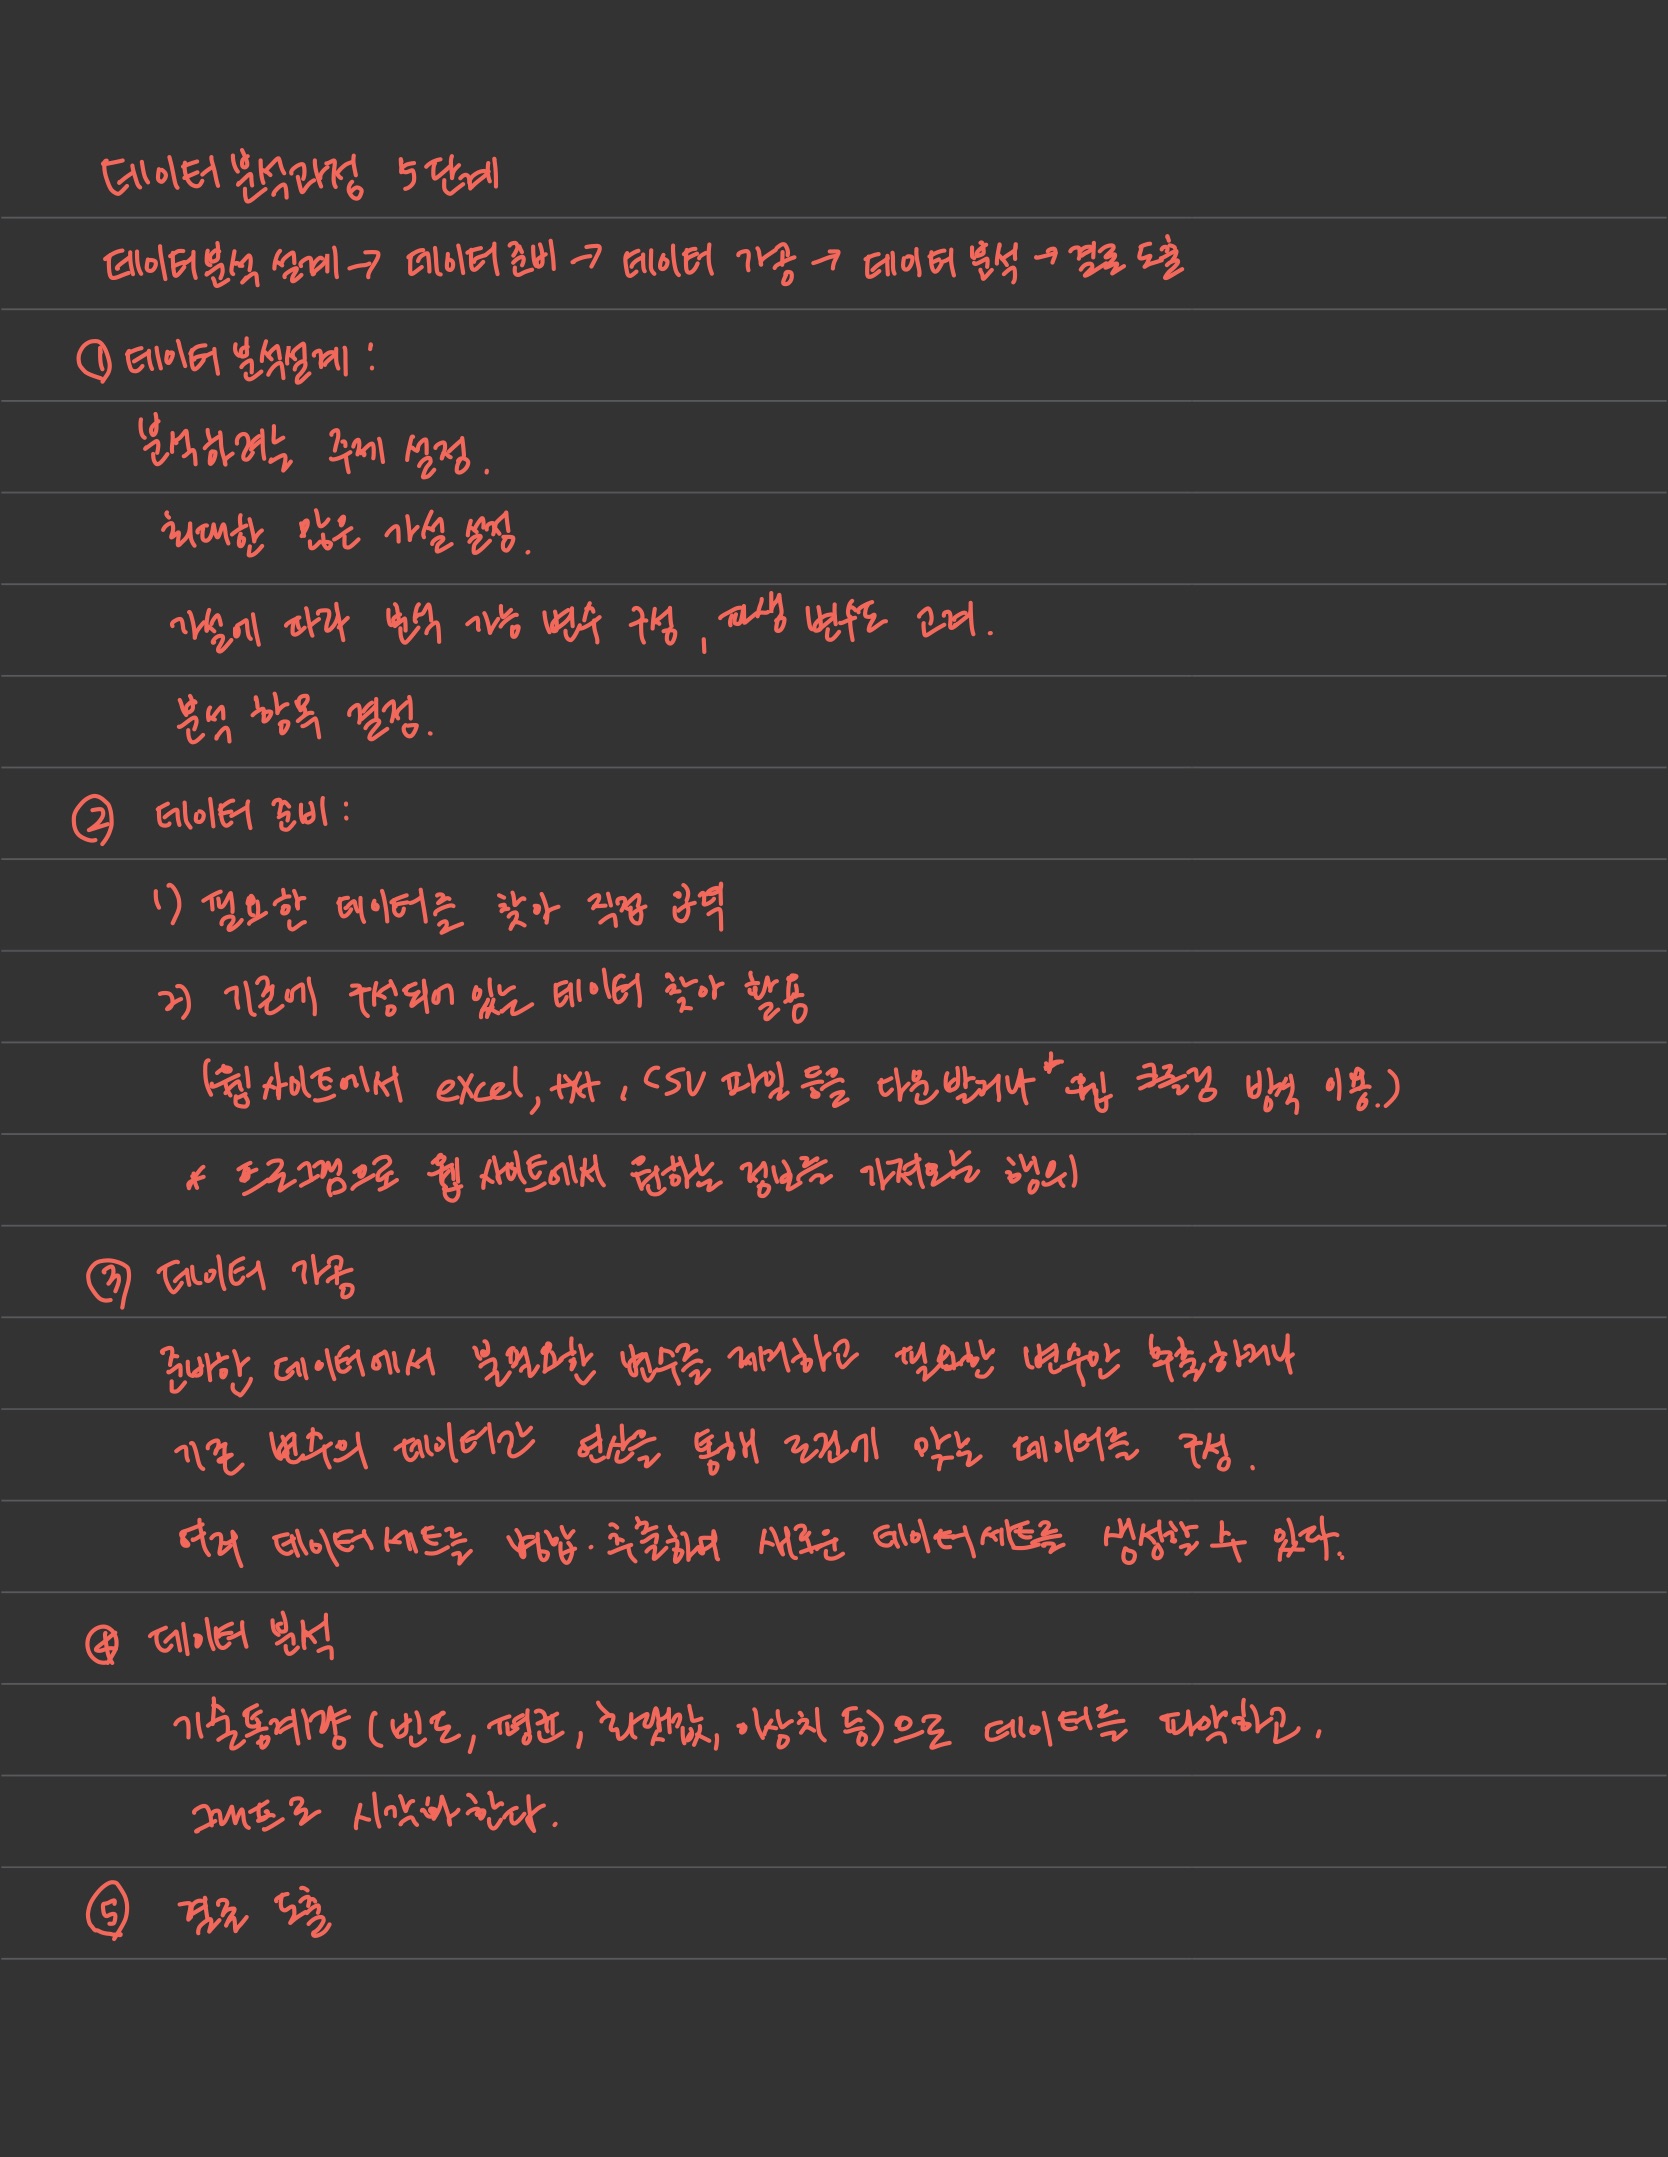 데이터 분석과정 5단계
데이터분석 설계 → 데이터 준비 → 데이터 가공 → 데이터 분석 → 결론 도출
① 데이터 분석설계 :
분석하려는 주제 설정.
최대한 많은 가설 설정.
가설에 따라 분석 가능 변수 구성, 파생 변수도 고려.
분석 항목 결정.
② 데이터 준비 :
1) 필요한 데이터를 찾아 직접 입력
2) 기존에 구성되어 있는 데이터 찾아 활용
(웹 사이트에서 excel, txt, CSV 파일 등을 다운받거나 * 웹 크롤링 방식 이용.)
* 프로그램으로 웹 사이트에서 원하는 정보를 가져오는 행위)
③ 데이터 가공
준비한 데이터에서 불필요한 변수를 제거하고 필요한 변수만 추출하거나
기존 변수의 데이터간 연산을 통해 조건에 맞는 데이터를 구성.
여러 데이터 세트를 병합·추출하여 새로운 데이터세트를 생성할 수 있다.
④ 데이터 분석
기술통계량 (빈도, 평균, 최댓값, 이상치 등)으로 데이터를 파악하고,
그래프로 시각화 한다.
⑤ 결론 도출